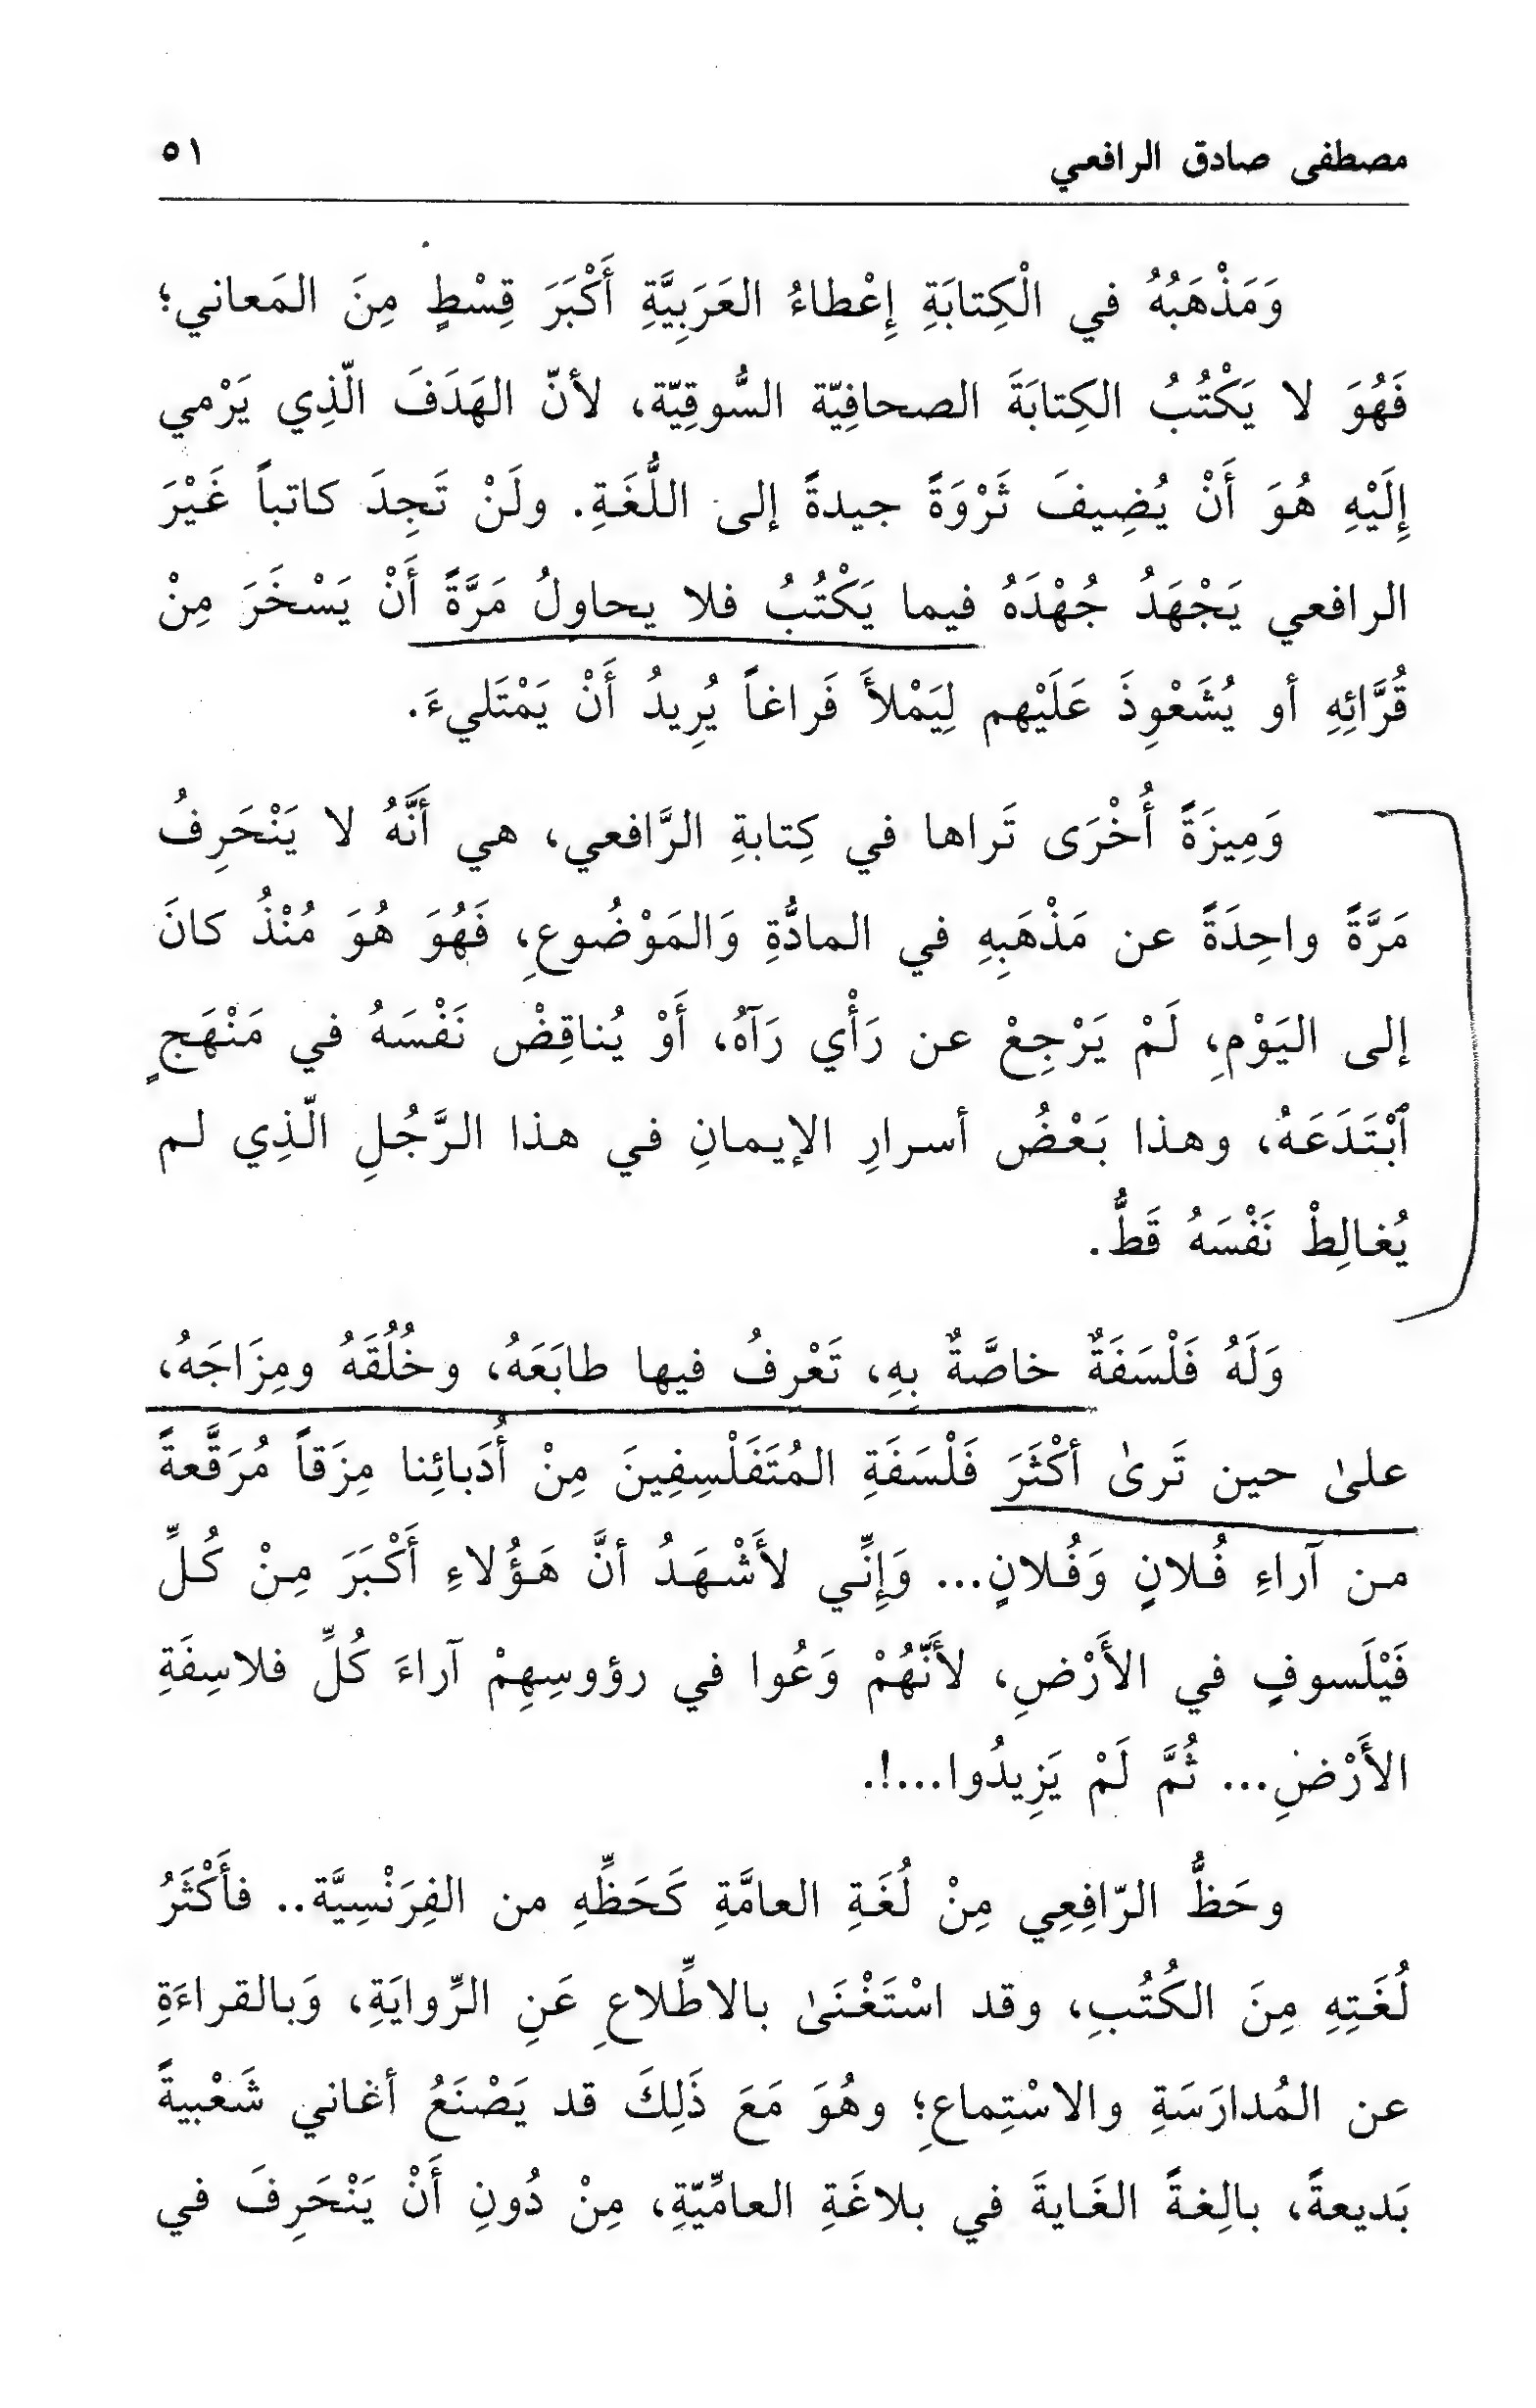 مصطفى صادق الرافعي ٥١
وَمَذْهَبُهُ في الْكِتابَةِ إِعْطاءُ العَرَبِيَّةِ أَكْبَرَ قِسْطٍ مِنَ المَعاني؛
فَهُوَ لا يَكْتُبُ الكِتابَةَ الصحافِيّة السُّوقِيّة، لأنّ الهَدَفَ الّذِي يَرْمي
إِلَيْهِ هُوَ أَنْ يُضِيفَ ثَرْوَةً جيدةً إلى اللُّغَةِ. ولَنْ تَجِدَ كاتباً غَيْرَ
الرافعي يَجْهَدُ جُهْدَهُ فيما يَكْتُبُ فلا يحاوِلُ مَرَّةً أَنْ يَسْخَرَ مِنْ
قُرَّائِهِ أو يُشَعْوِذَ عَلَيْهم لِيَمْلأَ فَراغاً يُرِيدُ أَنْ يَمْتَليءَ.
وَمِيزَةً أُخْرَى تَراها في كِتابةِ الرَّافعي، هي أَنَّهُ لا يَنْحَرِفُ
مَرَّةً واحِدَةً عن مَذْهَبِهِ في المادُّةِ وَالمَوْضُوعِ، فَهُوَ هُوَ مُنْذُ كانَ
إلى اليَوْمِ، لَمْ يَرْجِعْ عن رَأْي رَآهُ، أَوْ يُناقِضْ نَفْسَهُ في مَنْهَجٍ
ٱبْتَدَعَهُ، وهذا بَعْضُ أسرارِ الإيمانِ في هذا الرَّجُلِ الّذِي لم
يُغالِطْ نَفْسَهُ قَطُّ.
وَلَهُ فَلْسَفَةٌ خاصَّةٌ بِهِ، تَعْرِفُ فيها طابَعَهُ، وخُلُقَهُ ومِزَاجَهُ،
علىٰ حين تَرىٰ أكْثَرَ فَلْسَفَةِ المُتَفَلْسِفِينَ مِنْ أُدَبائِنا مِزَقاً مُرَقَّعةً
من آراءِ فُلانٍ وَفُلانٍ... وَإِنِّي لأَشْهَدُ أنَّ هَؤُلاءِ أَكْبَرَ مِنْ كُلِّ
فَيْلَسوفٍ في الأَرْضِ، لأَنَّهُمْ وَعُوا في رؤوسِهِمْ آراءَ كُلِّ فلاسِفَةِ
الأَرْضِ... ثُمَّ لَمْ يَزِيدُوا...!.
وحَظُّ الرّافِعِي مِنْ لُغَةِ العامَّةِ كَحَظِّهِ من الفِرَنْسِيَّة.. فأَكْثَرُ
لُغَتِهِ مِنَ الكُتُبِ، وقد اسْتَغْنَىٰ بالاطِّلاعِ عَنِ الرِّوايَةِ، وَبالقراءَةِ
عن المُدارَسَةِ والاسْتِماعِ؛ وهُوَ مَعَ ذَلِكَ قد يَصْنَعُ أغاني شَعْبيةً
بَديعةً، بالِغةً الغَايةَ في بلاغَةِ العامِّيّةِ، مِنْ دُونِ أَنْ يَنْحَرِفَ في